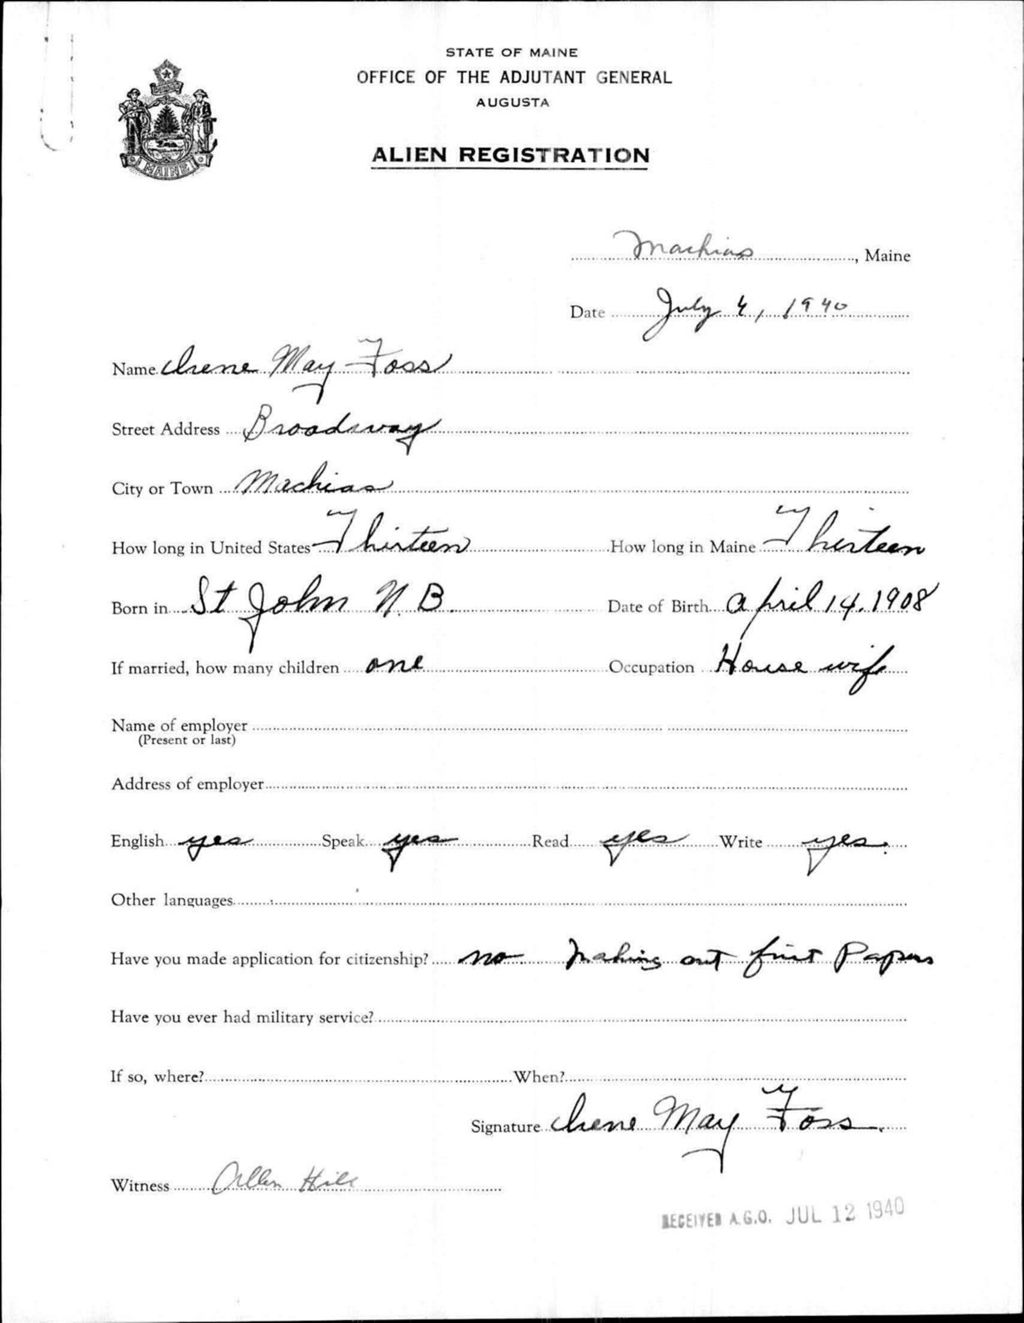 STATE OF MAINE
OFFICE OF THE ADJUTANT GENERAL
AUGUSTA
ALIEN REGISTRATION
MAINE
Machias, Maine
Date July 6, 1940
Name Irene May Foss
Street Address Broadway
City or Town Machias
How long in United States Thirteen How long in Maine Thirteen
Born in St John N.B. Date of Birth April 14, 1908
If married, how many children one Occupation House wife
Name of employer
(Present or last)
Address of employer
English yes Speak yes Read yes Write yes.
Other languages
Have you made application for citizenship? no Making out first Papers
Have you ever had military service?
If so, where? When?
Signature Irene May Foss.
Witness Allen Hill
RECEIVED A.G.O. JUL 12 1940